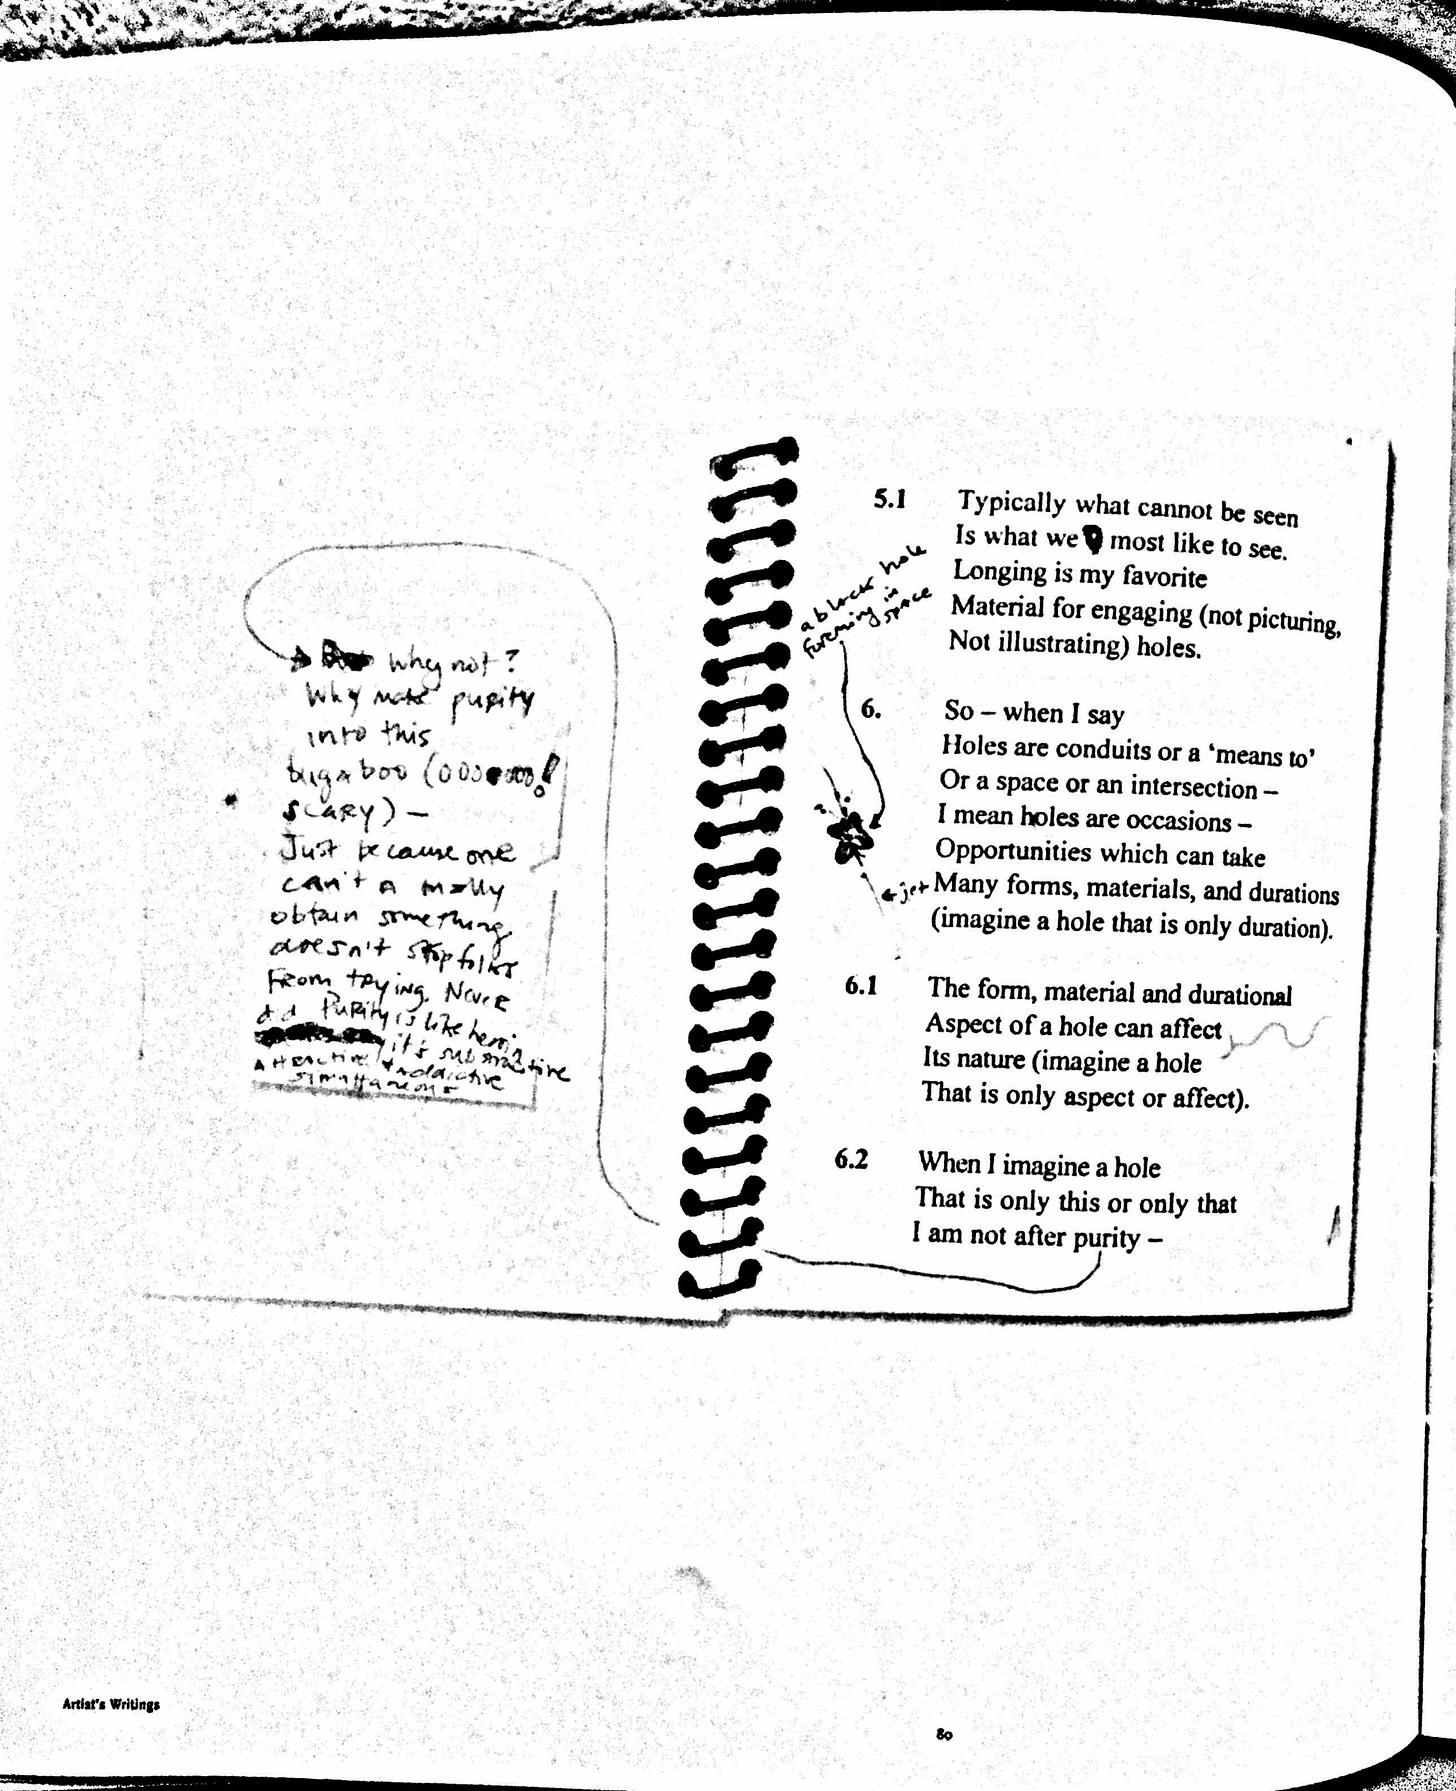 why not?
Why make purity
into this
bugaboo (oooooo!
scary) –
Just because one
can't
obtain something
doesn't stop folks
from trying. Never
did Purity is like
it's
Attractive & addictive
simultaneous
5.1 Typically what cannot be seen
Is what we most like to see.
Longing is my favorite
Material for engaging (not picturing,
Not illustrating) holes.
a black hole
forming in
space
6. So – when I say
Holes are conduits or a ‘means to’
Or a space or an intersection –
I mean holes are occasions –
Opportunities which can take
jet
Many forms, materials, and durations
(imagine a hole that is only duration).
6.1 The form, material and durational
Aspect of a hole can affect
Its nature (imagine a hole
That is only aspect or affect).
6.2 When I imagine a hole
That is only this or only that
I am not after purity –
Artist's Writings
80